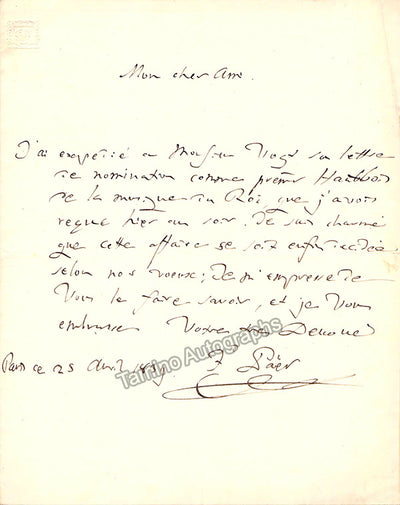 Mon cher Ami.
J'ai expédié a Monsieur Vogt sa lettre
de nomination comme premier Hautbois
de la musique du Roi, que j'avois
reçue hier au soir. Je suis charmé
que cette affaire se soit enfin décidée
selon nos voeux; Je m'empresse de
Vous le faire savoir, et je Vous
embrasse Votre très Devoué
Paris ce 25 Avril F. Päer
Tamino Autographs